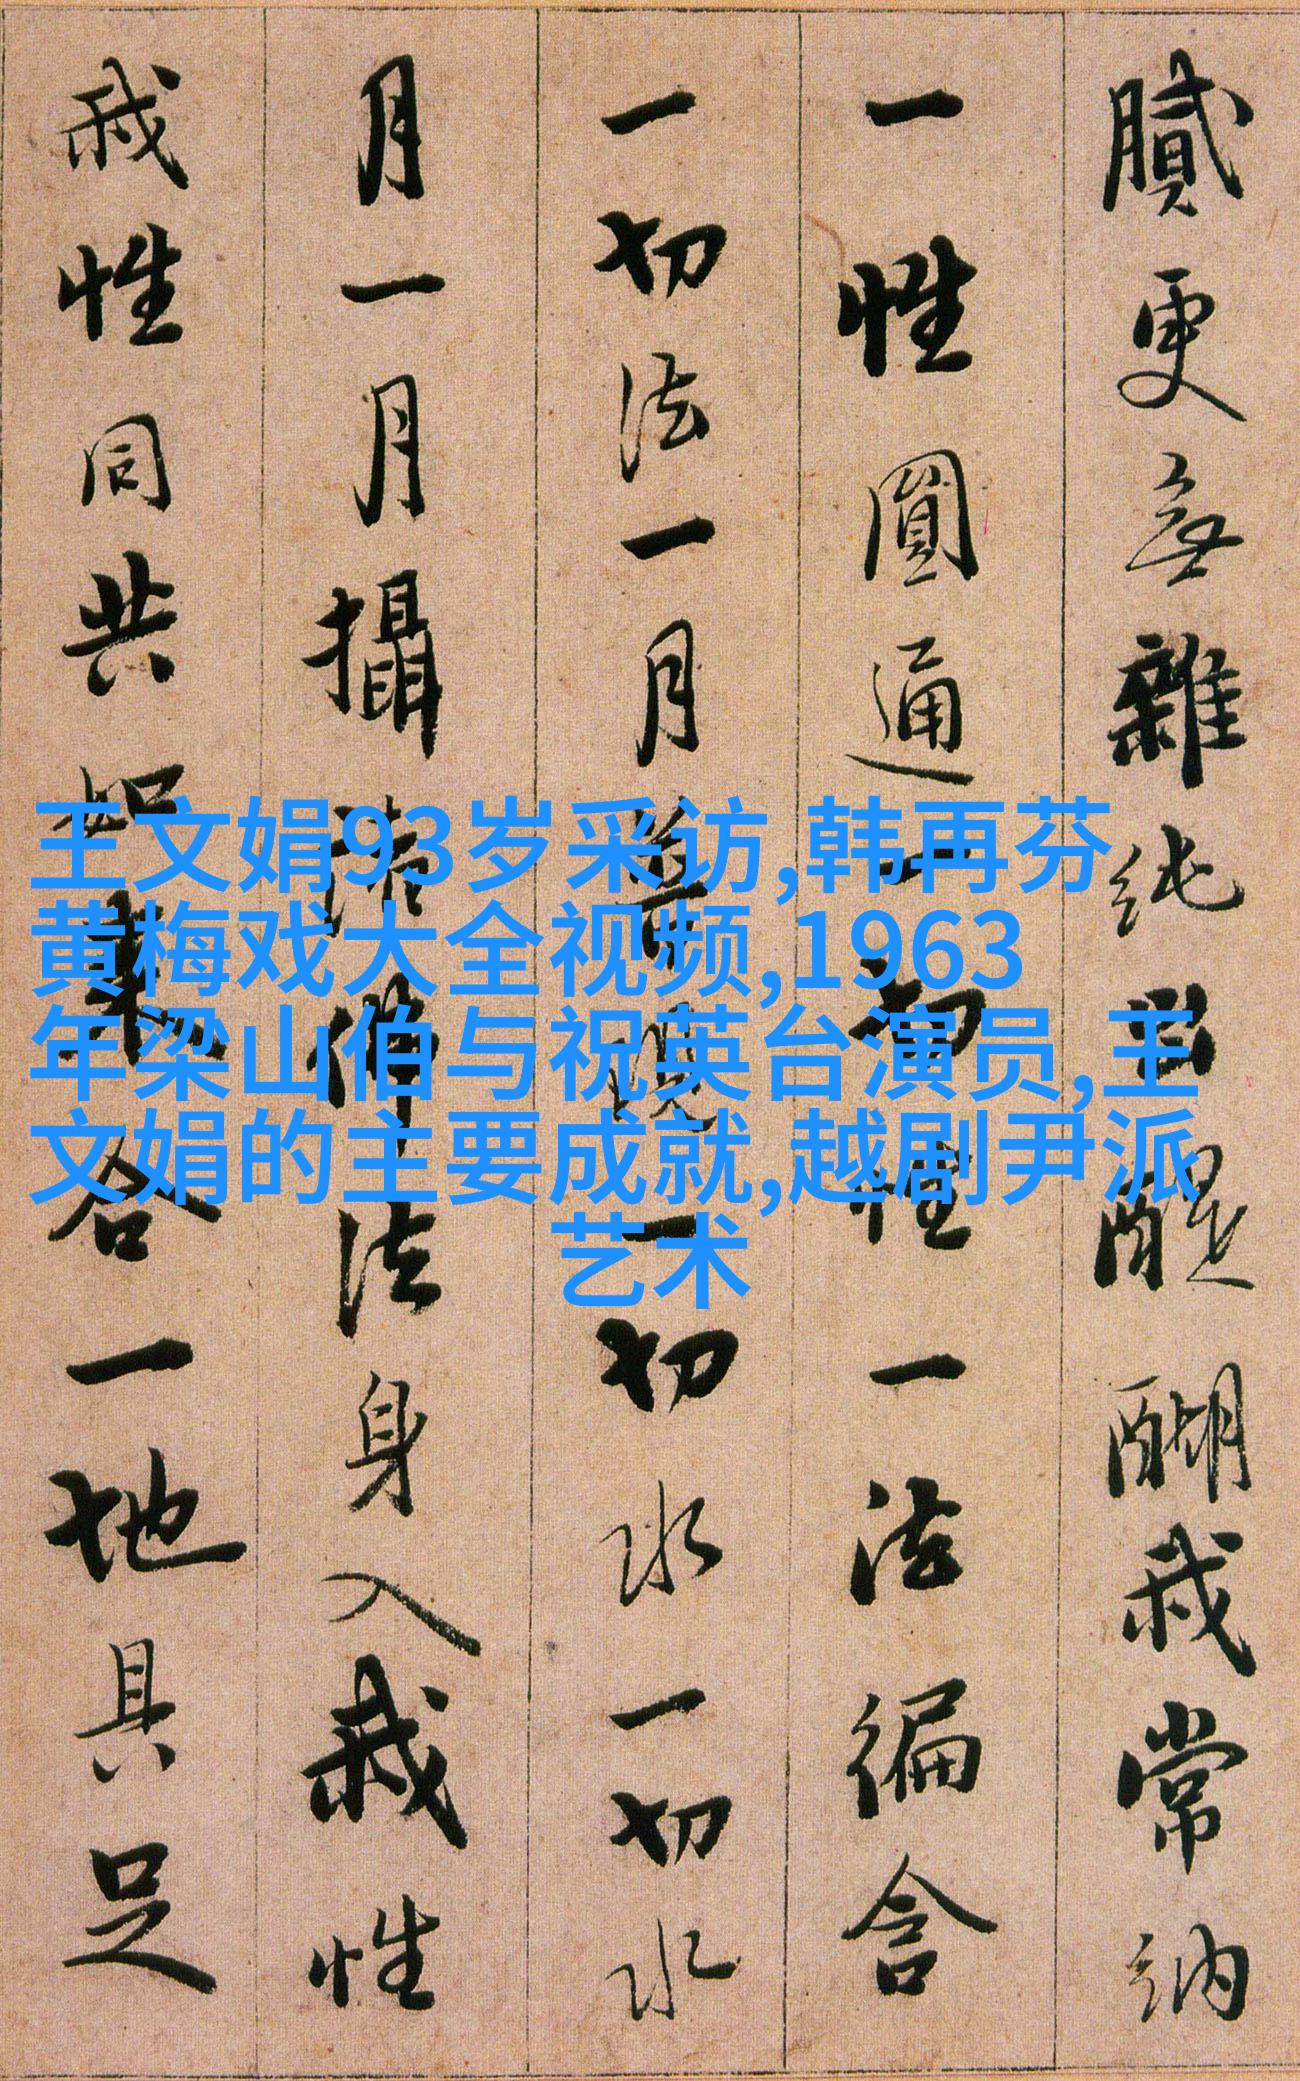 膩更無雜純出醍醐我常納
一性圓通一切性一法徧含
一切法一月普現一切水一切水
月一月攝諸佛法身入我性
我性同共如來合一地具足
王文娟93岁采访,韩再芬
黄梅戏大全视频,1963
年梁山伯与祝英台演员,王
文娟的主要成就,越剧尹派
艺术